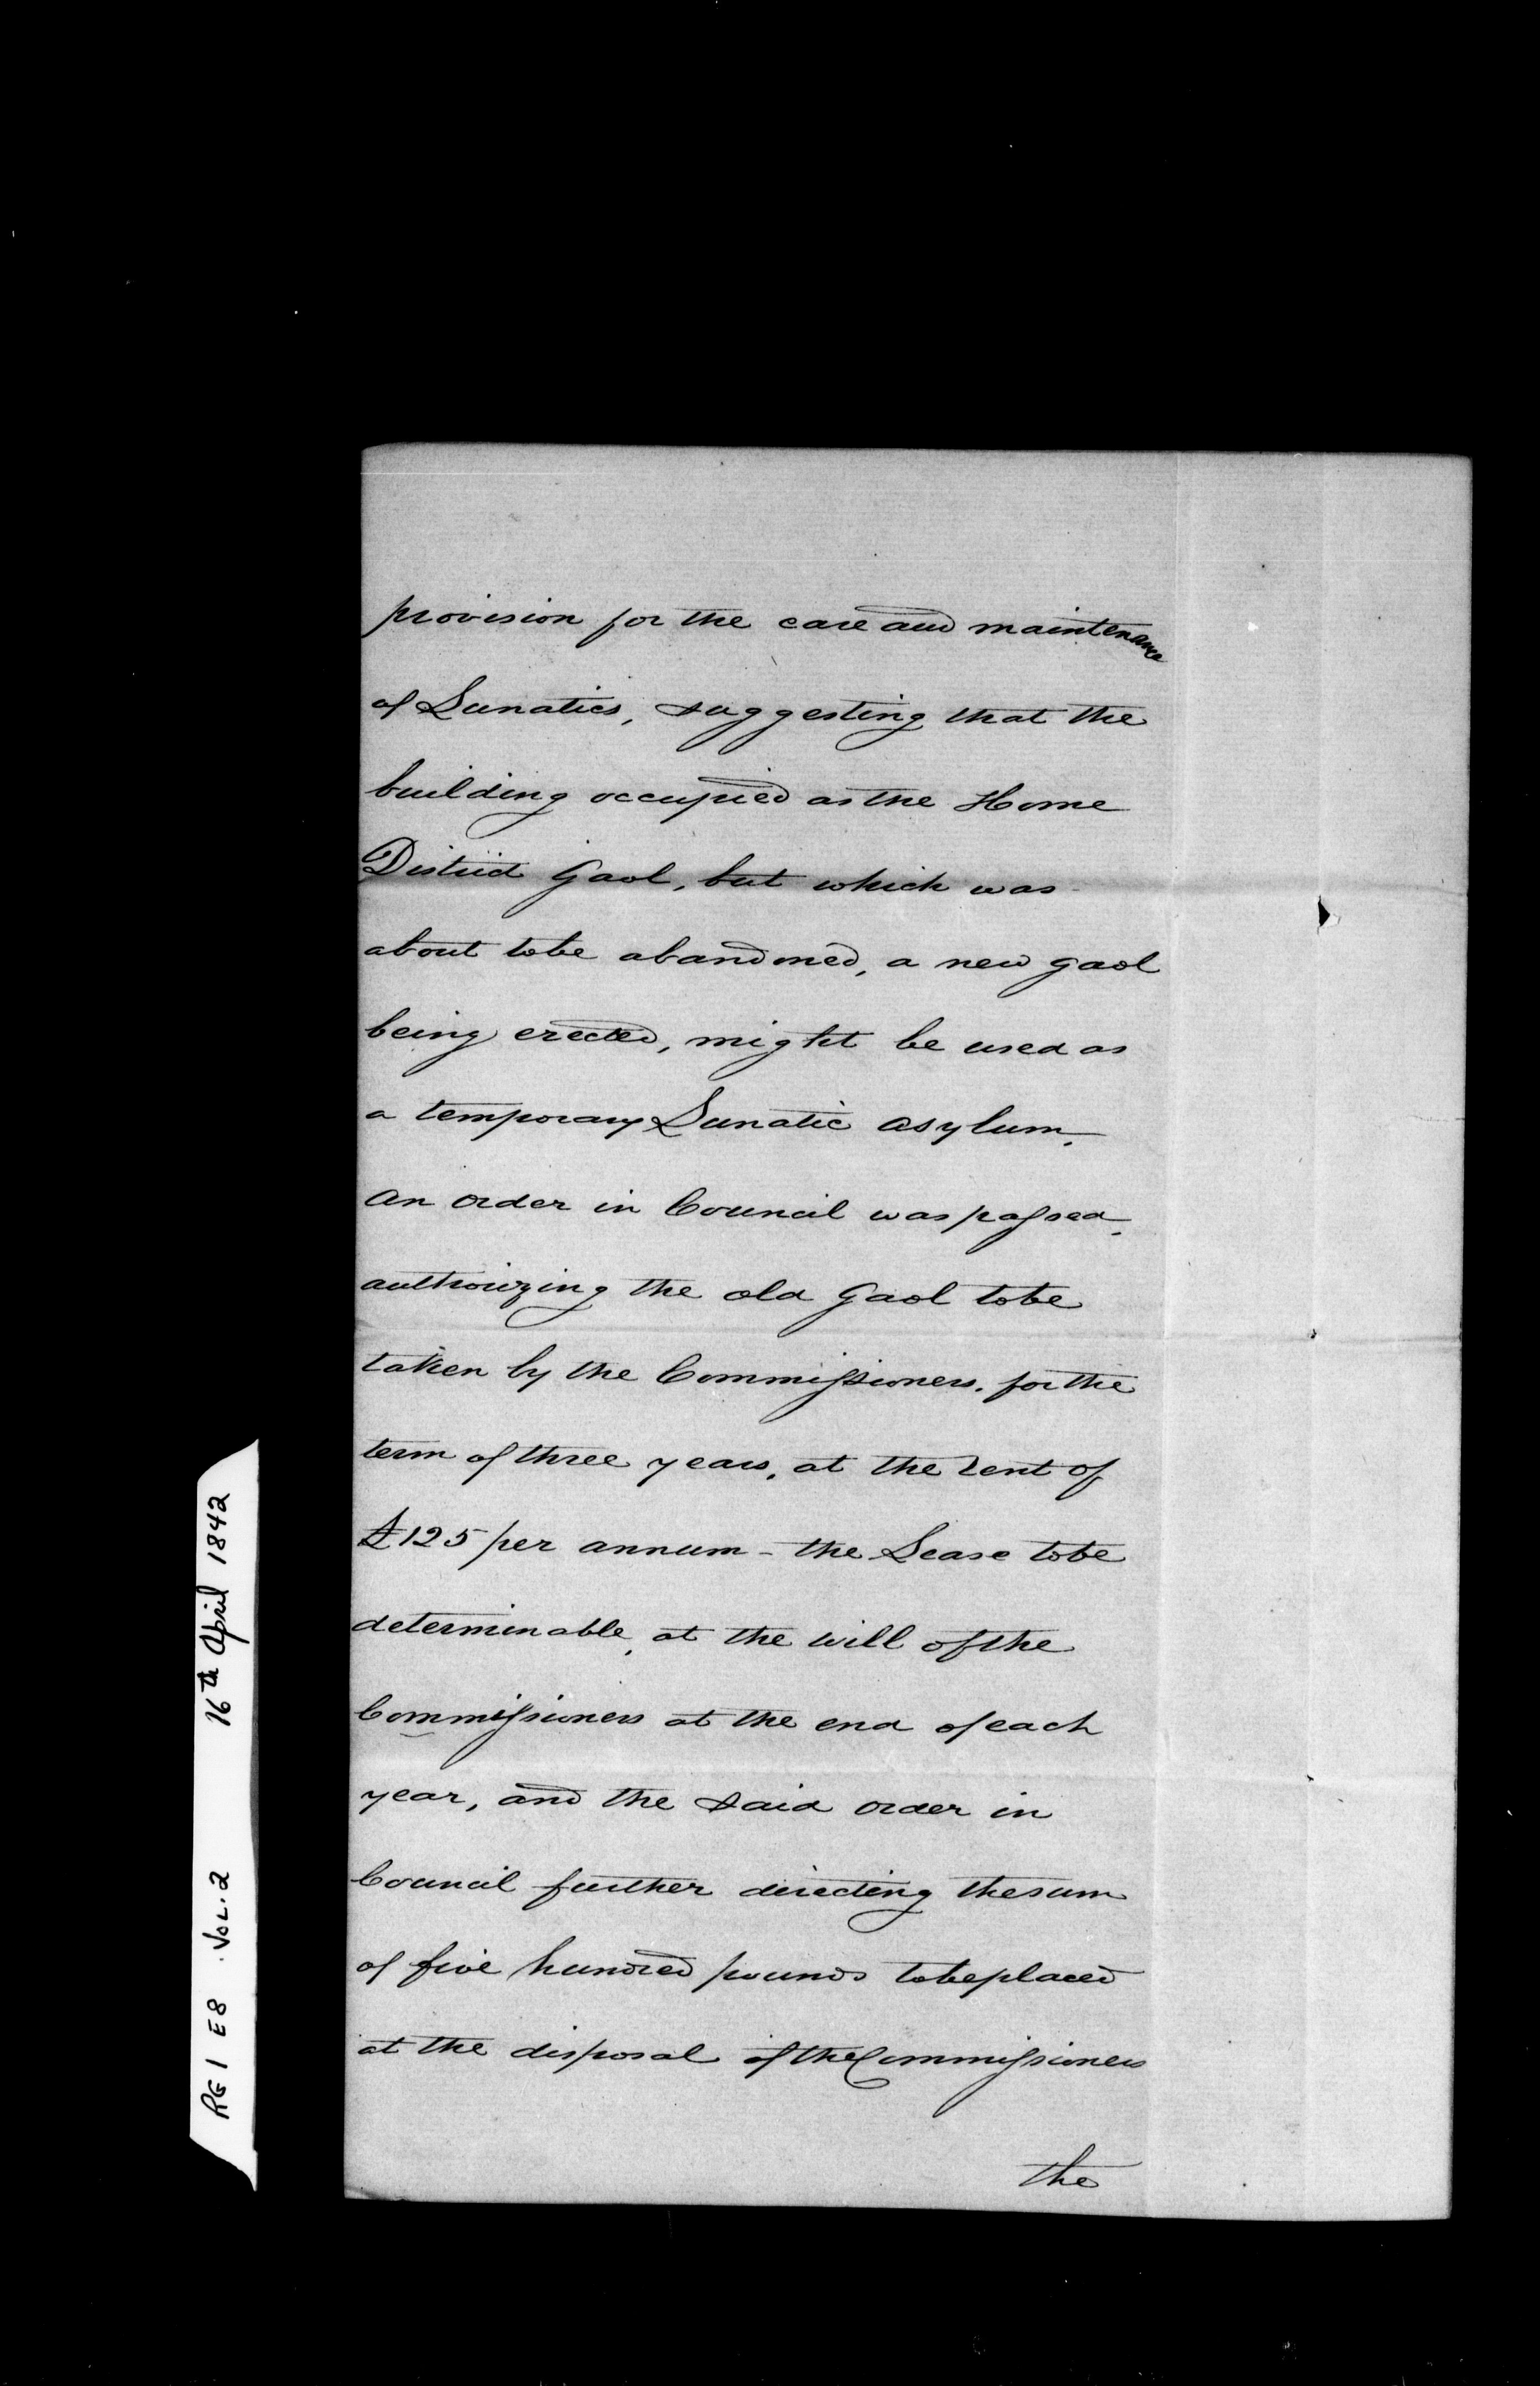 provision for the care and maintenance
of Lunatics, suggesting that the
building occupied as the Home
District Gaol, but which was
about to be abandoned, a new gaol
being erected, might be used as
a temporary Lunatic asylum.
An order in Council was passed,
authorizing the old Gaol to be
taken by the Commissioners, for the
term of three years, at the rent of
£125 per annum - the Lease to be
determinable, at the will of the
Commissioners at the end of each
year, and the said order in
Council further directing the sum
of five hundred pounds to be placed
at the disposal of the Commissioners
the
RG 1 E8 VOL. 2 16th April 1842